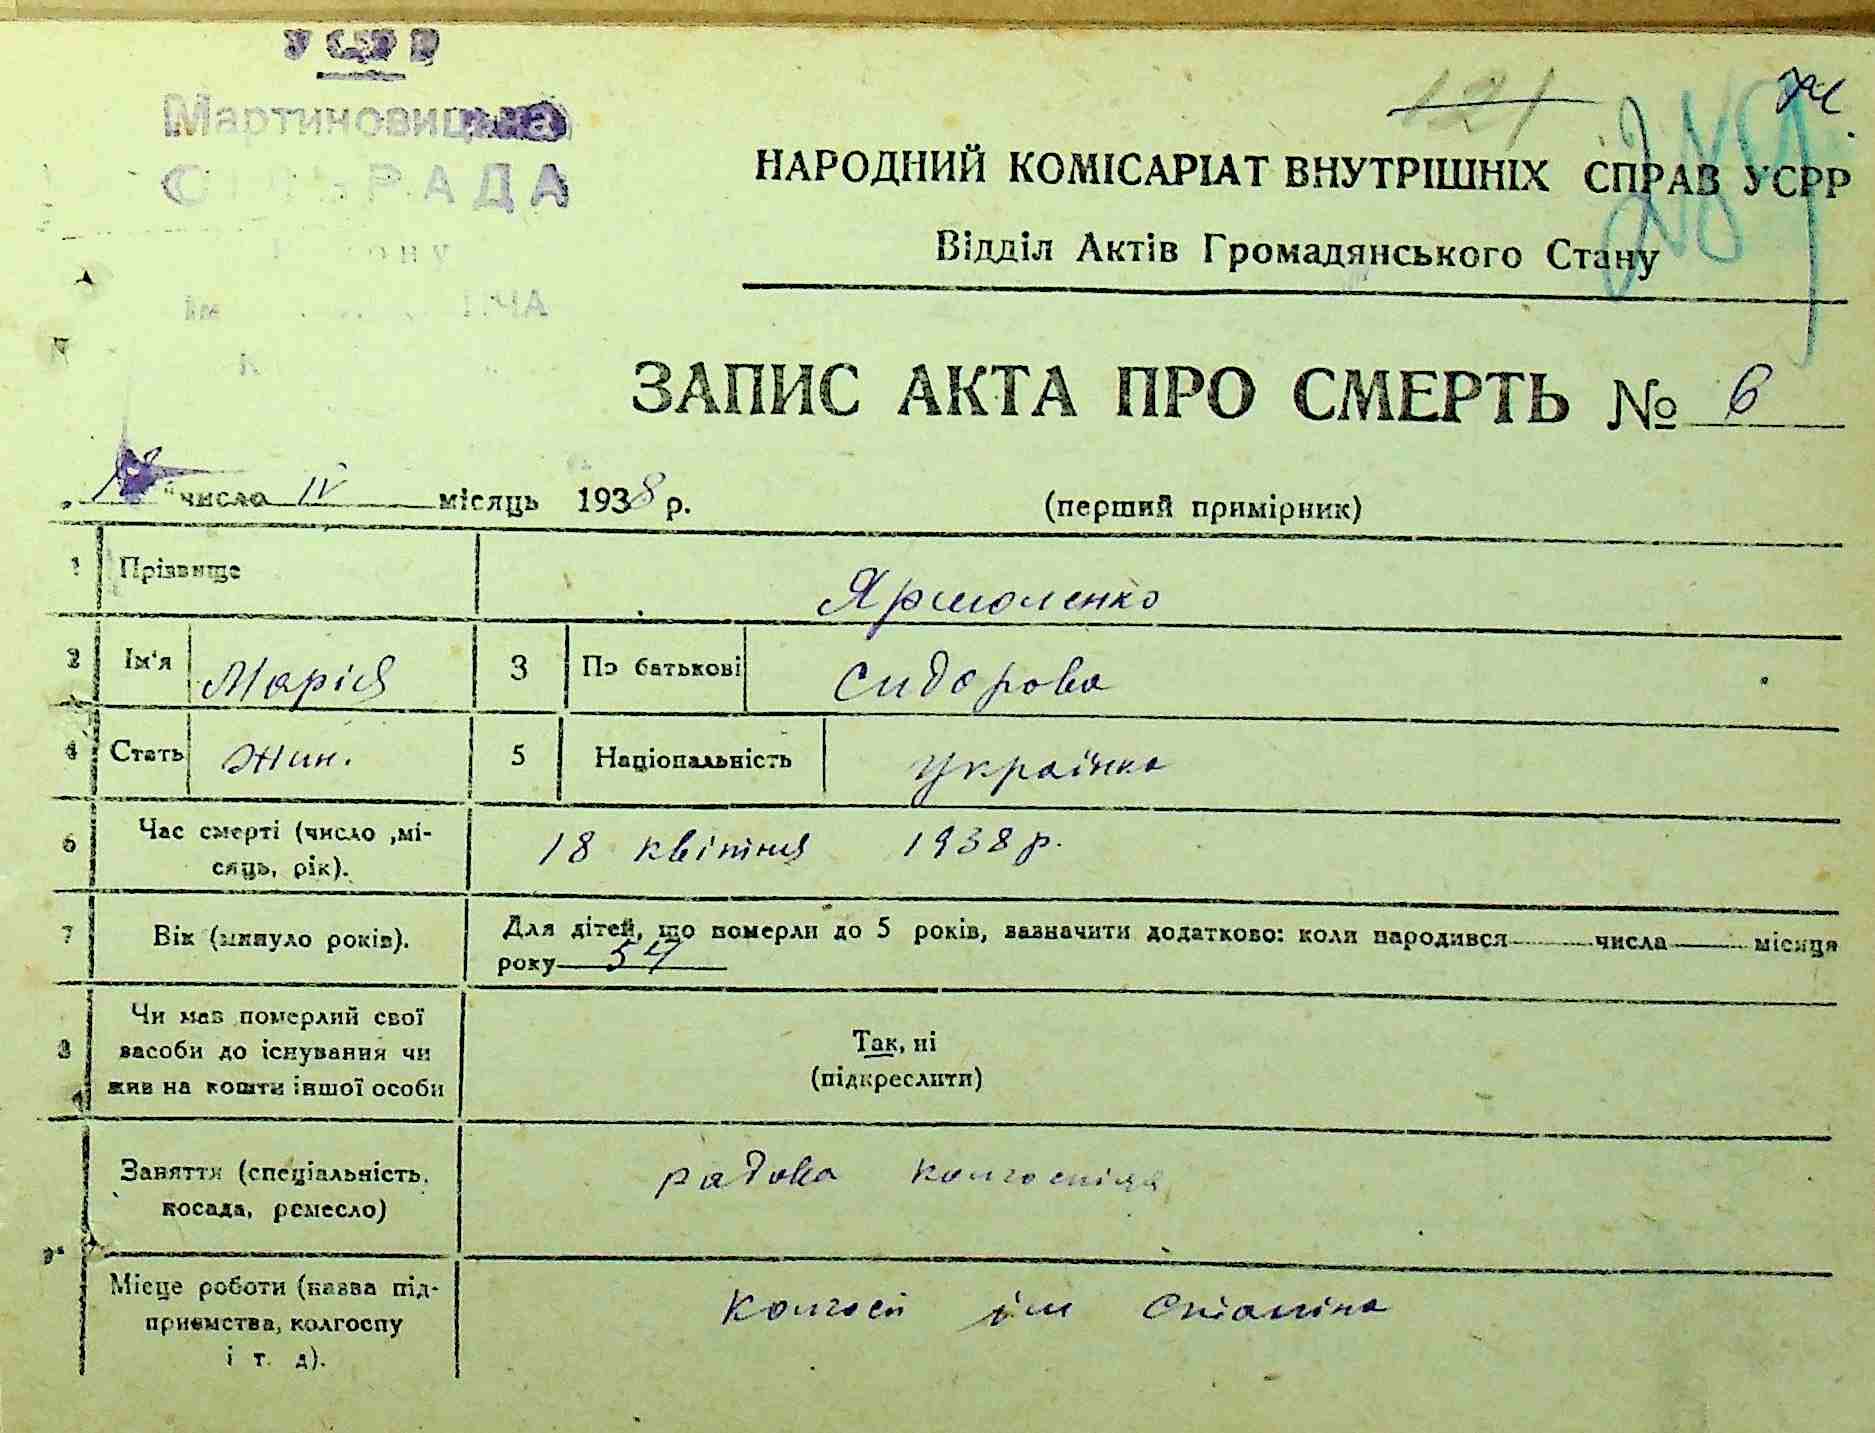 УСРР
Мартиновицька
СІЛЬРАДА
121
289
НАРОДНИЙ КОМІСАРІАТ ВНУТРІШНІХ СПРАВ УСРР
Відділ Актів Громадянського Стану
ЗАПИС АКТА ПРО СМЕРТЬ № 6
"18" число IV місяць 1938 р. (перший примірник)
1 Прізвище Ярмоленко
2 Ім'я Марія 3 По батькові Сидорова
4 Стать Жин. 5 Національність українка
6 Час смерті (число ,мі- 18 квітня 1938 р.
сяць, рік).
7 Вік (минуло років). Для дітей, що померли до 5 років, зазначити додатково: коли народився числа місяця
року 54
Чи мав померлий свої
8 засоби до існування чи Так, ні
жив на кошти іншої особи (підкреслити)
Заняття (спеціальність, радова колгоспіця
посада, ремесло)
9
Місце роботи (назва під- Колгосп ім Сталіна
приємства, колгоспу
і т. д).